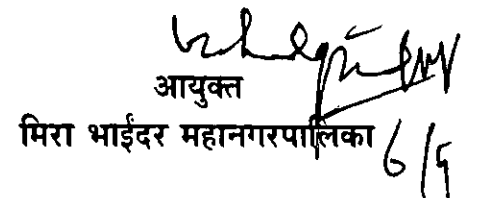 आयुक्त
मिरा भाईंदर महानगरपालिका
6/5